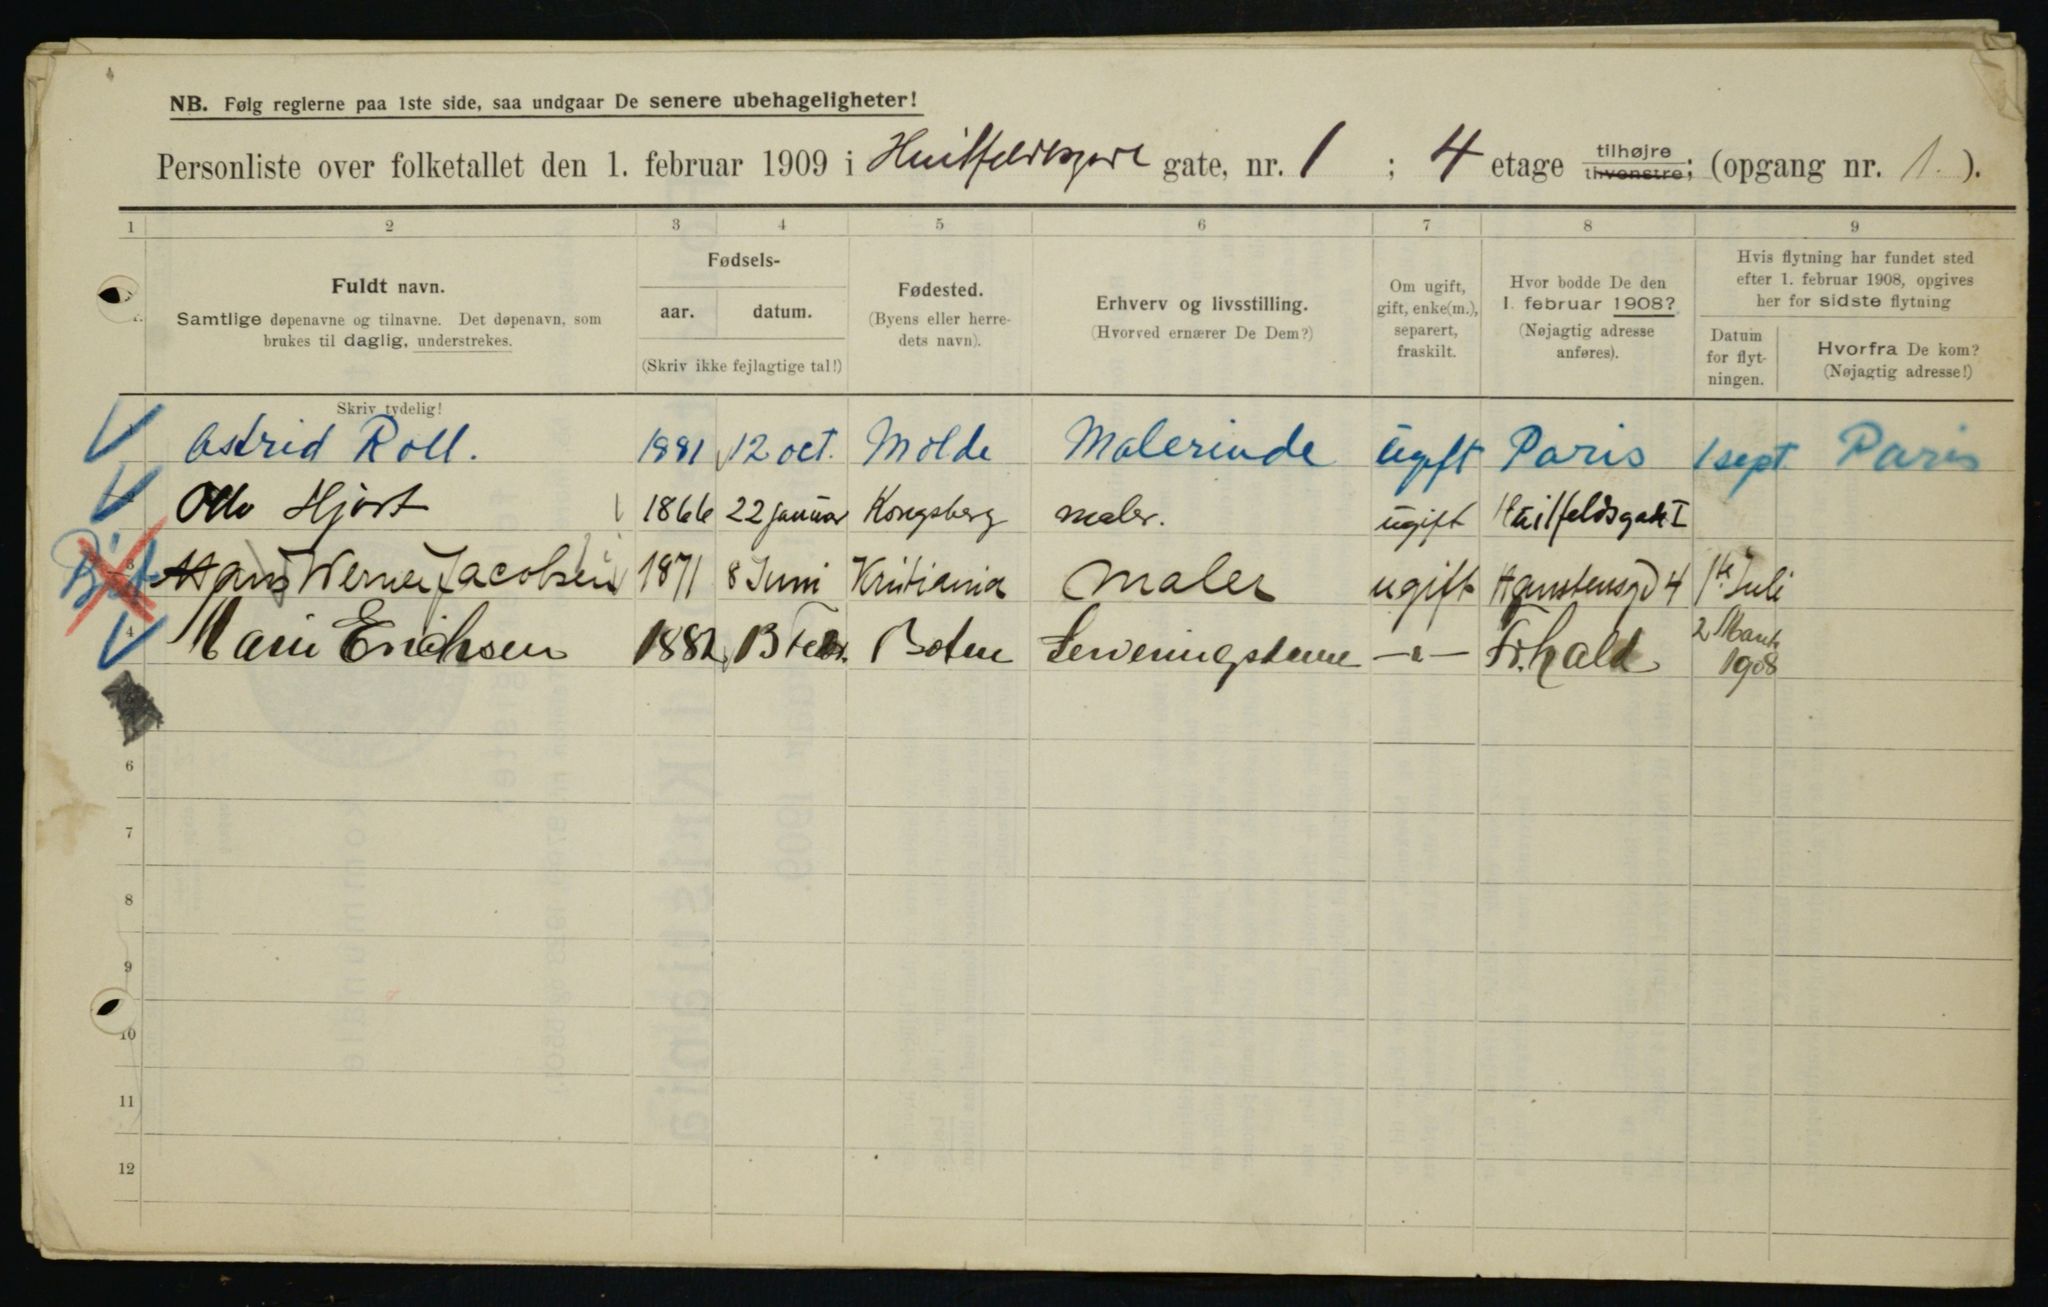 NB. Følg reglerne paa 1ste side, saa undgaar De senere ubehageligheter!
Personliste over folketallet den 1. februar 1909 i Huitfeldtsgate gate, nr. 1 ; 4 etage tilhøjre tilvenstre; (opgang nr. 1.).
1 2 3 4 5 6 7 8 9
Fuldt navn.
Samtlige døpenavne og tilnavne. Det døpenavn, som
brukes til daglig, understrekes.
Skriv tydelig!
Fødsels-
aar. datum.
(Skriv ikke fejlagtige tal!)
Fødested.
(Byens eller herre-
dets navn).
Erhverv og livsstilling.
(Hvorved ernærer De Dem?)
Om ugift,
gift, enke(m.),
separert,
fraskilt.
Hvor bodde De den
1. februar 1908?
(Nøjagtig adresse
anføres).
Hvis flytning har fundet sted
efter 1. februar 1908, opgives
her for sidste flytning
Datum
for flyt-
ningen.
Hvorfra De kom?
(Nøjagtig adresse!)
Astrid Roll. 1881 12 oct. Molde Malerinde ugift Paris 1 sept Paris
Otto Hjort 1866 22 januar Kongsberg maler. ugift Huilfeldsgate I
3 Hans Werner Jacobsen 1871 8 Juni Kristiania Maler ugift 4 1ste Juli
4 Marie Erichsen 1882 13 Febr. Serveringsdame —"— 2 Marts
1908
6
7
8
9
10
11
12